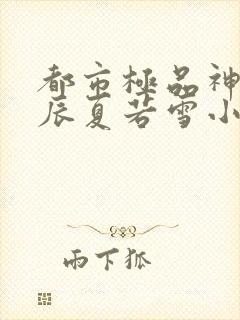 都市極品神
辰夏若雪小
雨下狐